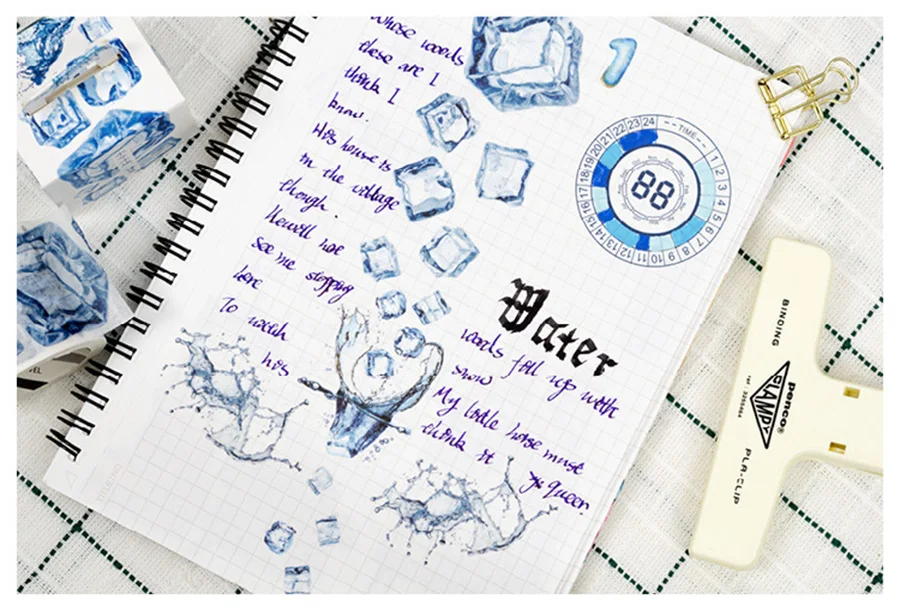 Whose woods
these are I
think I
know.
His house is
in the village
though.
He will not
see me stopping
here
To watch
his
Water
woods fill up with
snow
My little horse must
think it queer.
1
--TIME--
1 2 3 4 5 6 7 8 9 10 11 12 13 14 15 16 17 18 19 20 21 22 23 24
88
BINDING
penco®
CLAMPY
PLA-CLIP